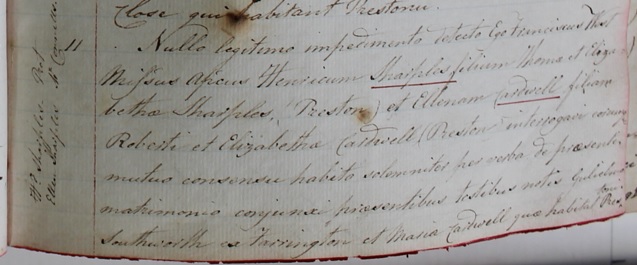 Close qui habitant Prestonii.
11 . Nullo legitimo impedimento detecto Ego Franciscus West
Missus Apicus Henricum Sharples filium Thomæ et Eliza-
bethæ Sharples, (Preston) et Ellenam Cardwell filiam
Roberti et Elizabethæ Cardwell (Preston interrogavi eorumq
mutuo consensu habito solemniter per verba de præsenti
matrimonio conjunxi præsentibus testibus notis Gulielmo
Southworth ex Farrington et Maria Cardwell quæ habitat
Sharples Prot
Ellen Sharples